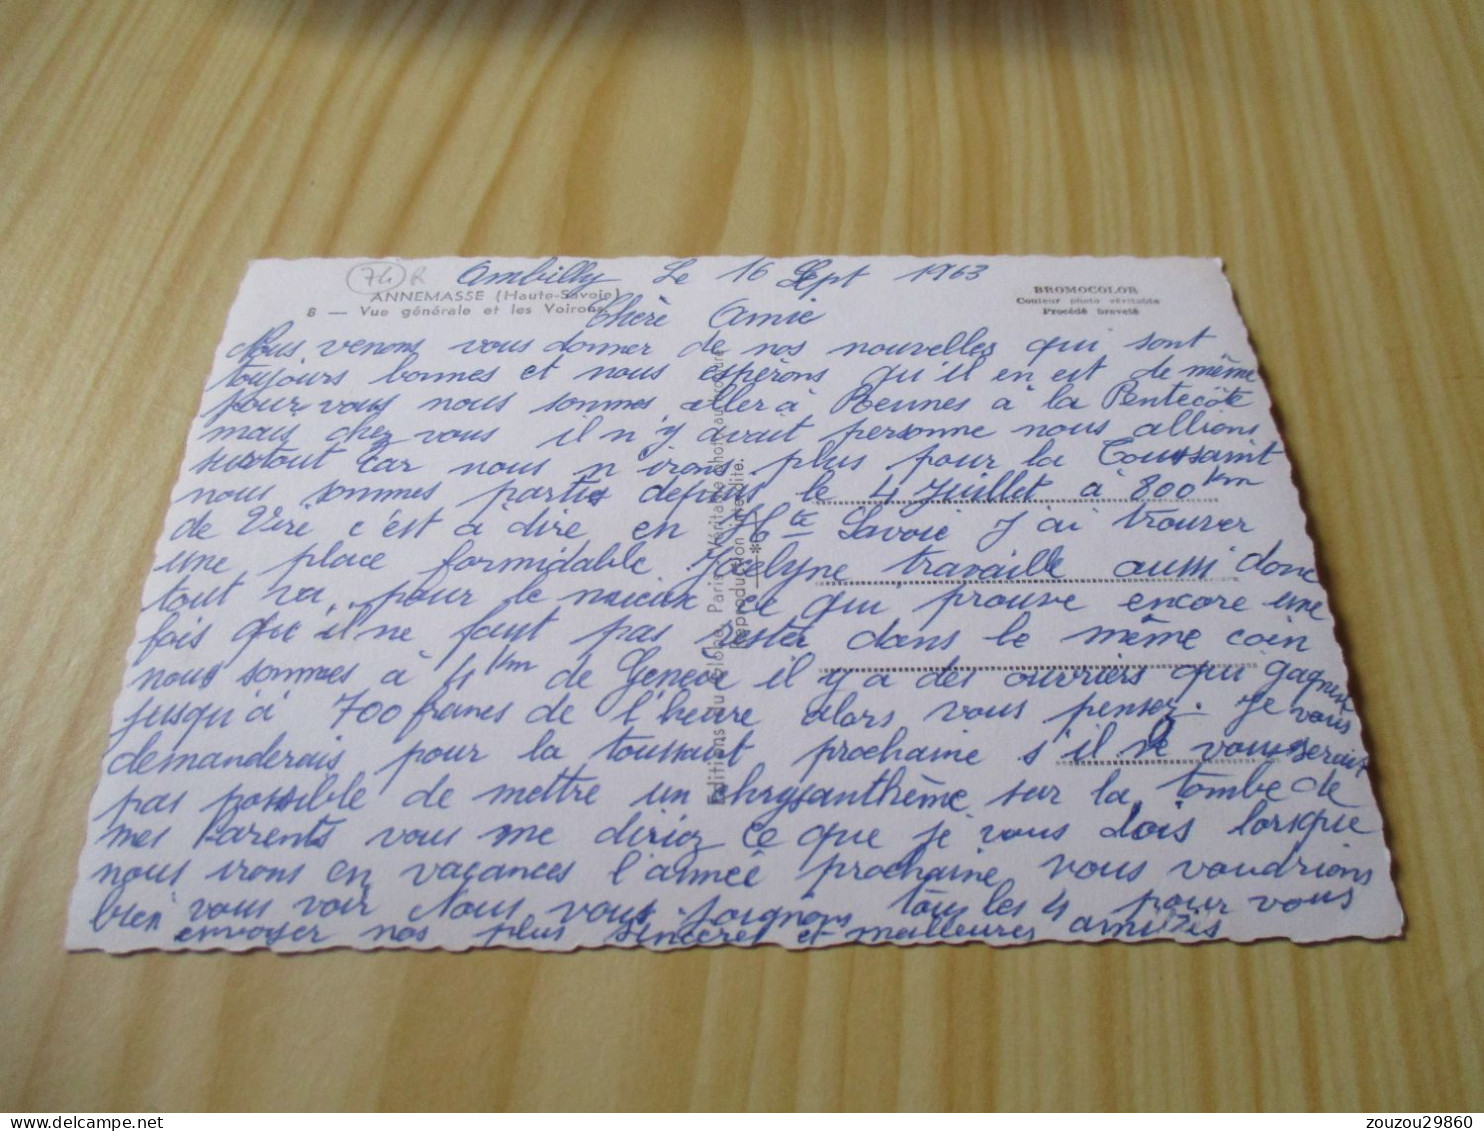 74 R
Ambilly Le 16 Sept 1963
ANNEMASSE (Haute-Savoie)
8 — Vue générale et les Voirons
BROMOCOLOR
Couleur photo véritable
Procédé breveté
Chère Amie
Nous venons vous donner de nos nouvelles qui sont
toujours bonnes et nous espérons qu'il en est de même
pour vous nous sommes aller à Rennes à la Pentecôte
mais chez vous il n'y avait personne nous allions
surtout car nous n'irons plus pour la Toussaint
nous sommes partis depuis le 4 Juillet à 800 km
de Viré c'est à dire en Hte Savoie J'ai trouver
une place formidable Jocelyne travaille aussi donc
tout va pour le mieux ce qui prouve encore une
fois que il ne faut pas rester dans le même coin
nous sommes à 4 Km de Genève il y a des ouvriers qui gagnent
jusqu'à 700 francs de l'heure alors vous pensez. Je vous
demanderais pour la toussaint prochaine s'il ne vous serais
pas possible de mettre un chrysanthème sur la tombe de
mes Parents vous me diriez ce que je vous dois lorsque
nous irons en vacances l'année prochaine vous voudrions
bien vous voir Nous vous joignons tous les 4 pour vous
envoyer nos plus sincères et meilleures amitiés
Editions du Globe, Paris. Véritable photo au
Reproduction interdite.
zouzou29860